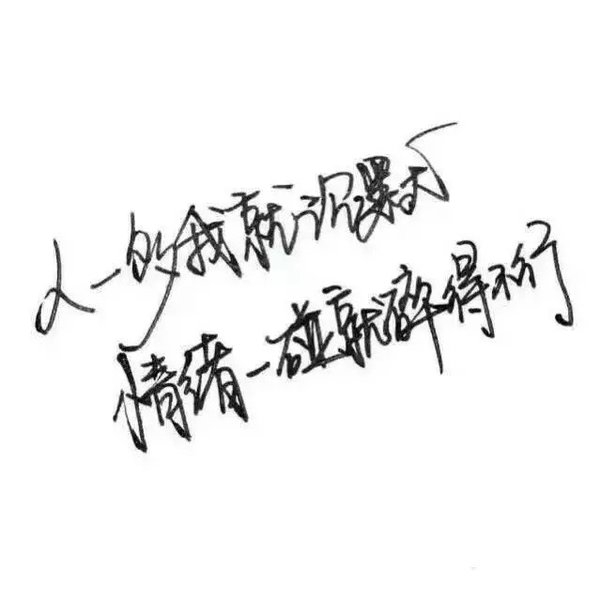 人一我就沉默了
情绪一碰就碎得不行